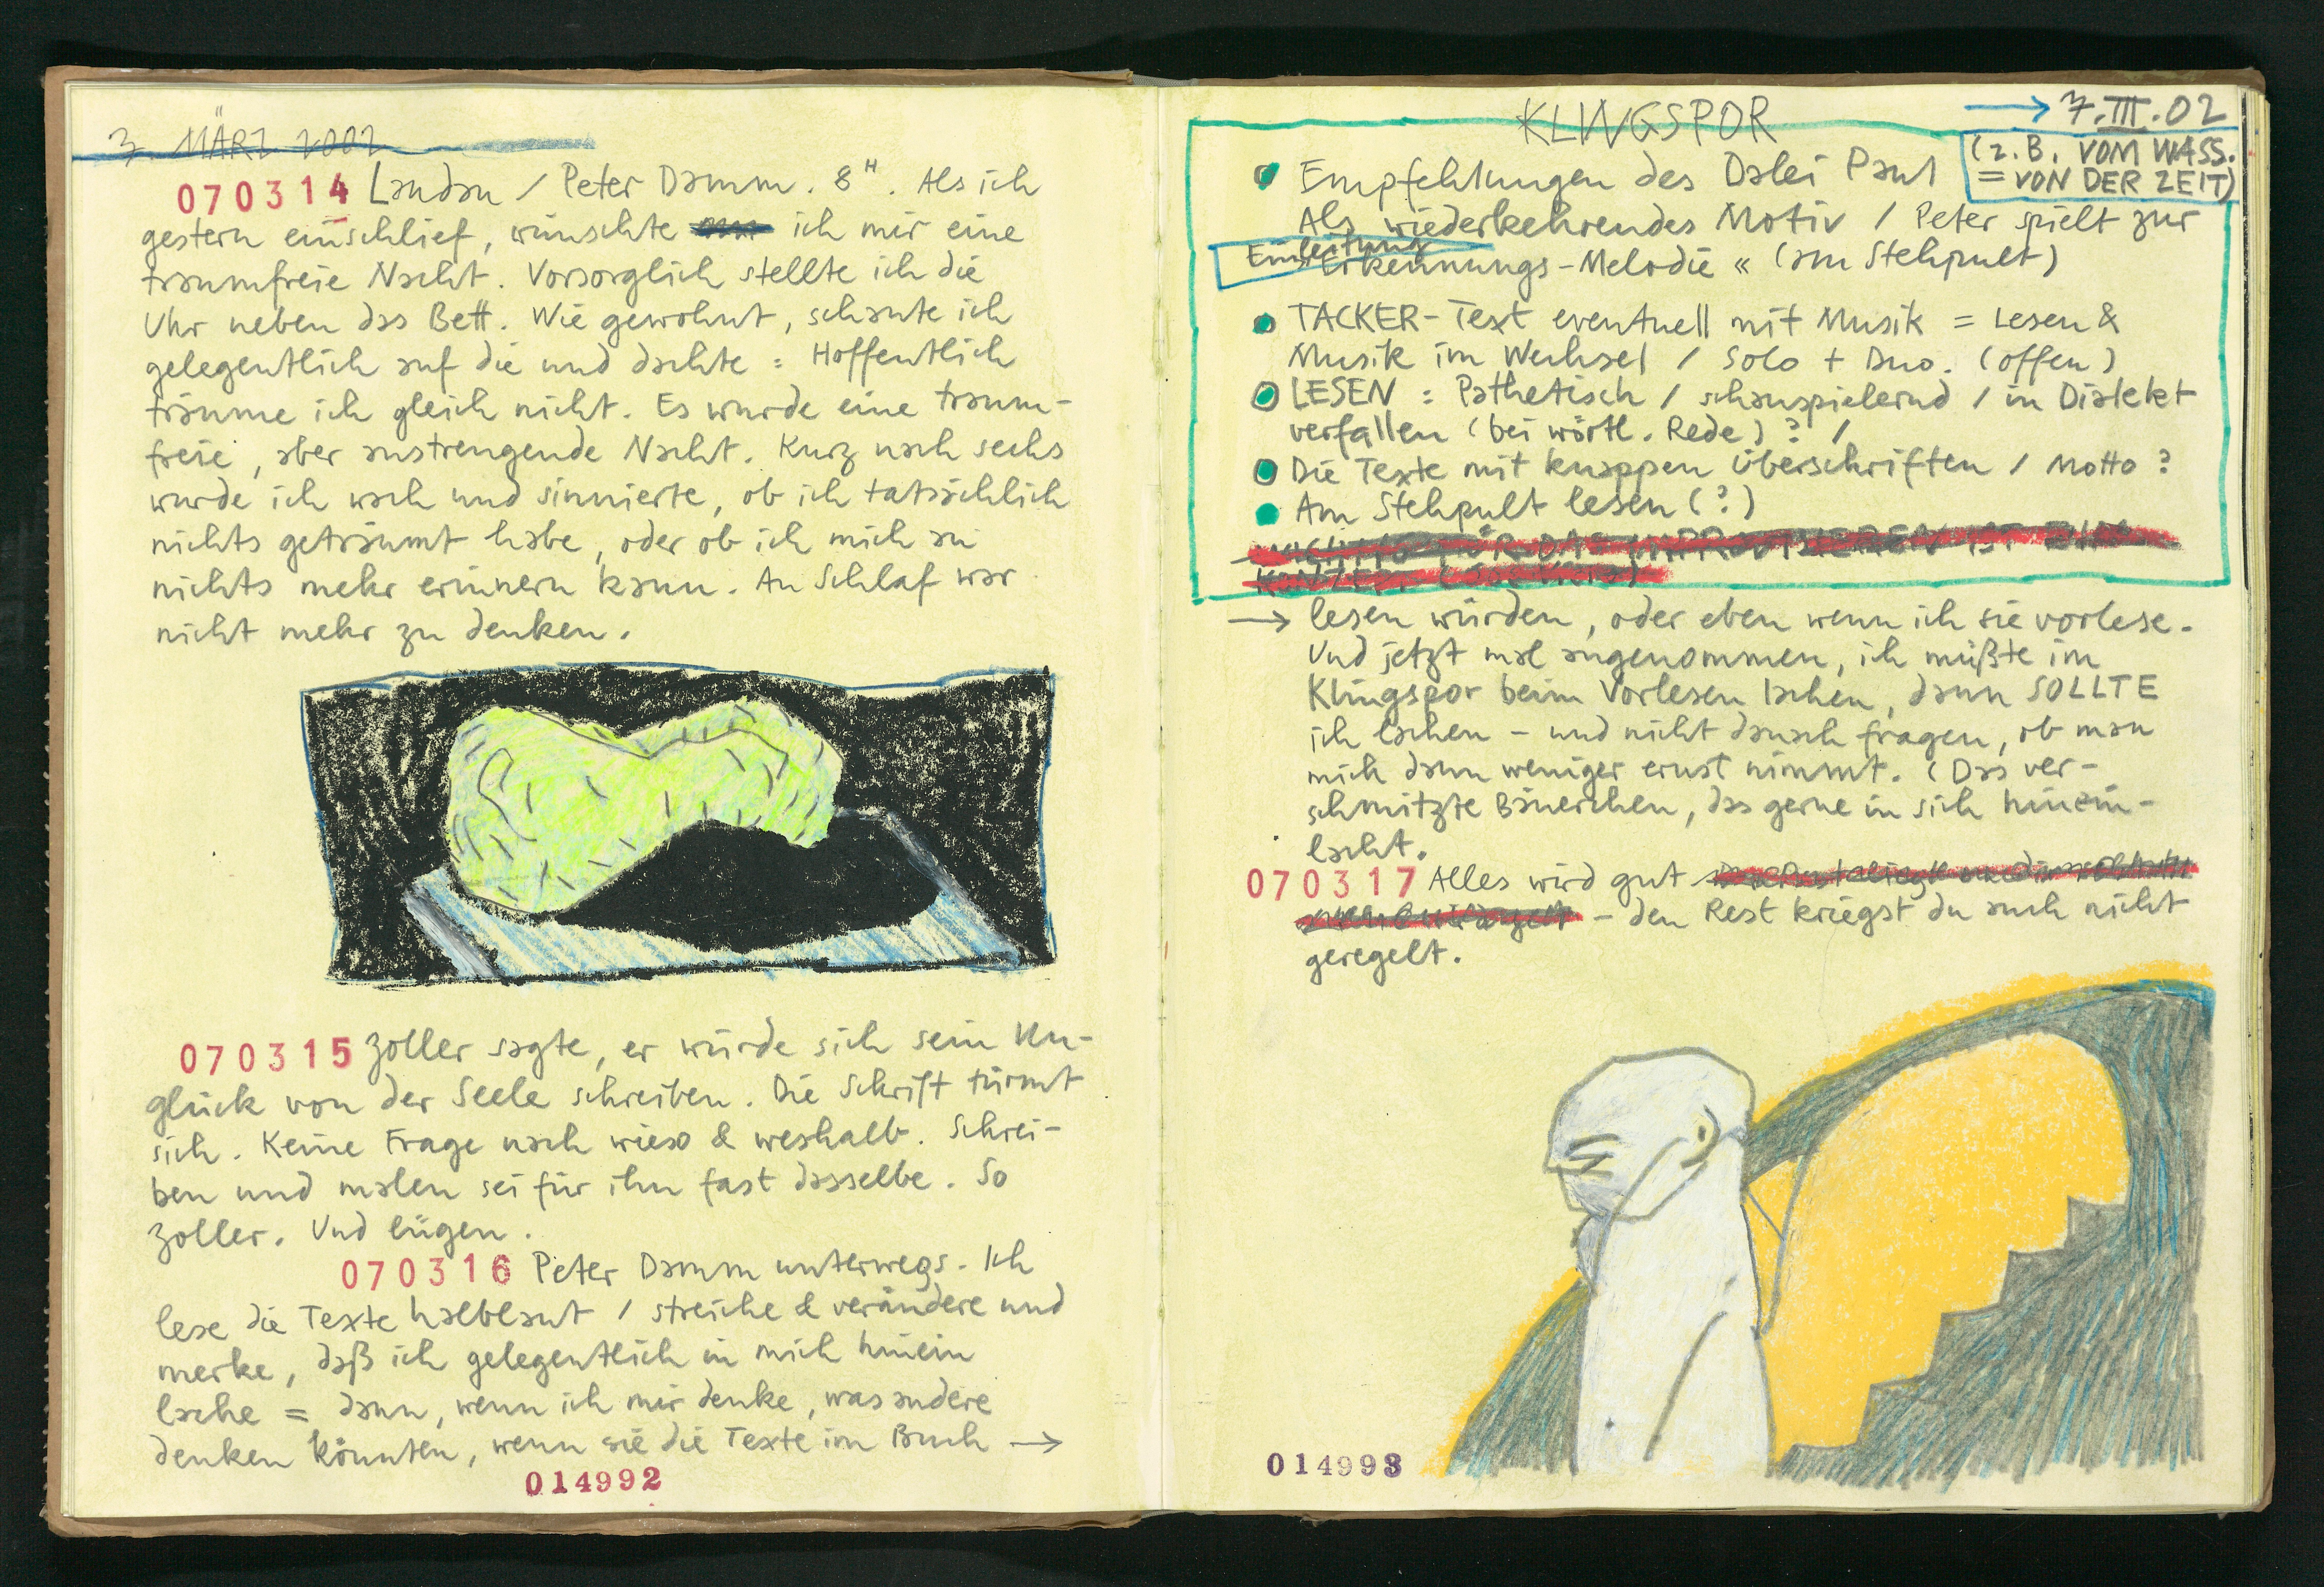 7. MÄRZ 2002
070314 Landau / Peter Damm. 8H. Als ich
gestern einschlief, wünschte ich mir eine
traumfreie Nacht. Vorsorglich stellte ich die
Uhr neben das Bett. Wie gewohnt, schaute ich
gelegentlich auf die und dachte: Hoffentlich
träume ich gleich nicht. Es wurde eine traum-
freie, aber anstrengende Nacht. Kurz nach sechs
wurde ich wach und sinnierte, ob ich tatsächlich
nichts geträumt habe, oder ob ich mich an
nichts mehr erinnern kann. An Schlaf war
nicht mehr zu denken.
070315 Zoller sagte, er würde sich sein Un-
glück von der Seele schreiben. Die Schrift türmt
sich. Keine Frage nach wieso & weshalb. Schrei-
ben und malen sei für ihn fast dasselbe. So
Zoller. Und lügen.
070316 Peter Damm unterwegs. Ich
lese die Texte halblaut / streiche & verändere und
merke, daß ich gelegentlich in mich hinein
lache = dann, wenn ich mir denke, was andere
denken könnten, wenn sie die Texte im Buch →
014992
KLINGSPOR
→ 7.III.02
(z.B. VOM WASS.
= VON DER ZEIT)
Empfehlungen des Dalei Paul
Als wiederkehrendes Motiv / Peter spielt zur
Einleitung
Erkennungs-Melodie « (am Stehpult)
TACKER-Text eventuell mit Musik = Lesen &
Musik im Wechsel / Solo + Duo. (offen)
LESEN: Pathetisch / schauspielernd / in Dialekt
verfallen (bei wörtl. Rede) ? /
Die Texte mit knappen Überschriften / Motto?
Am Stehpult lesen (?)
FÜR DAS IMPROVISIEREN IST EIN
KONZEPT
→ lesen würden, oder eben wenn ich sie vorlese.
Und jetzt mal angenommen, ich müßte im
Klingspor beim Vorlesen lachen, dann SOLLTE
ich lachen – und nicht danach fragen, ob man
mich dann weniger ernst nimmt. (Das ver-
schmitzte Bäuerchen, das gerne in sich hinein-
lacht.
070317 Alles wird gut
– den Rest kriegst du auch nicht
geregelt.
014993